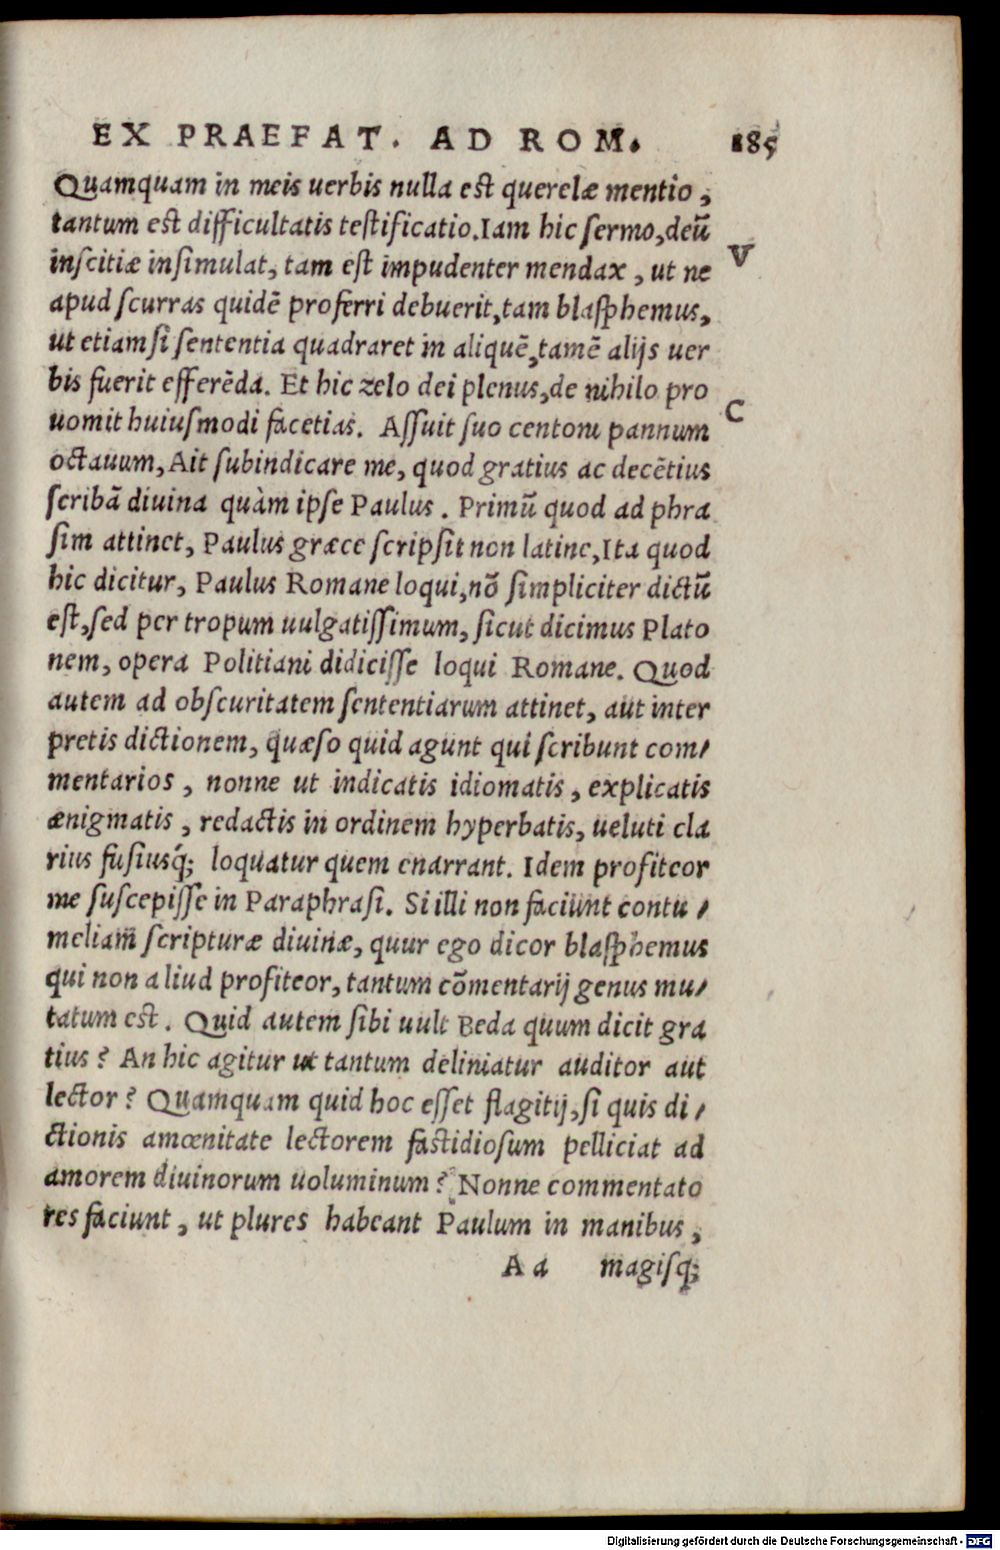 EX PRAEFAT. AD ROM. 185
Quamquam in meis uerbis nulla est querelæ mentio,
tantum est difficultatis testificatio. Iam hic sermo, deū
inscitiæ insimulat, tam est impudenter mendax, ut ne
V
apud scurras quidē proferri debuerit, tam blasphemus,
ut etiam si sententia quadraret in aliquē, tamē alijs uer
bis fuerit efferēda. Et hic zelo dei plenus, de nihilo pro
C
uomit huiusmodi facetias. Assuit suo centoni pannum
octauum, Ait subindicare me, quod gratius ac decētius
scribā diuina quàm ipse Paulus. Primū quod ad phra
sim attinet, Paulus græce scripsit non latine, Ita quod
hic dicitur, Paulus Romane loqui, nō simpliciter dictū
est, sed per tropum uulgatissimum, sicut dicimus Plato
nem, opera Politiani didicisse loqui Romane. Quod
autem ad obscuritatem sententiarum attinet, aut inter
pretis dictionem, quæso quid agunt qui scribunt com/
mentarios, nonne ut indicatis idiomatis, explicatis
ænigmatis, redactis in ordinem hyperbatis, ueluti cla
rius fusiusq́; loquatur quem enarrant. Idem profiteor
me suscepisse in Paraphrasi. Si illi non faciunt contu/
meliam scripturæ diuinæ, quur ego dicor blasphemus
qui non aliud profiteor, tantum cōmentarij genus mu/
tatum est. Quid autem sibi uult Beda quum dicit gra
tius? An hic agitur ut tantum deliniatur auditor aut
lector? Quamquam quid hoc esset flagitij, si quis di/
ctionis amœnitate lectorem fastidiosum pelliciat ad
amorem diuinorum uoluminum? Nonne commentato
res faciunt, ut plures habeant Paulum in manibus,
A a magisq;
Digitalisierung gefördert durch die Deutsche Forschungsgemeinschaft - DFG